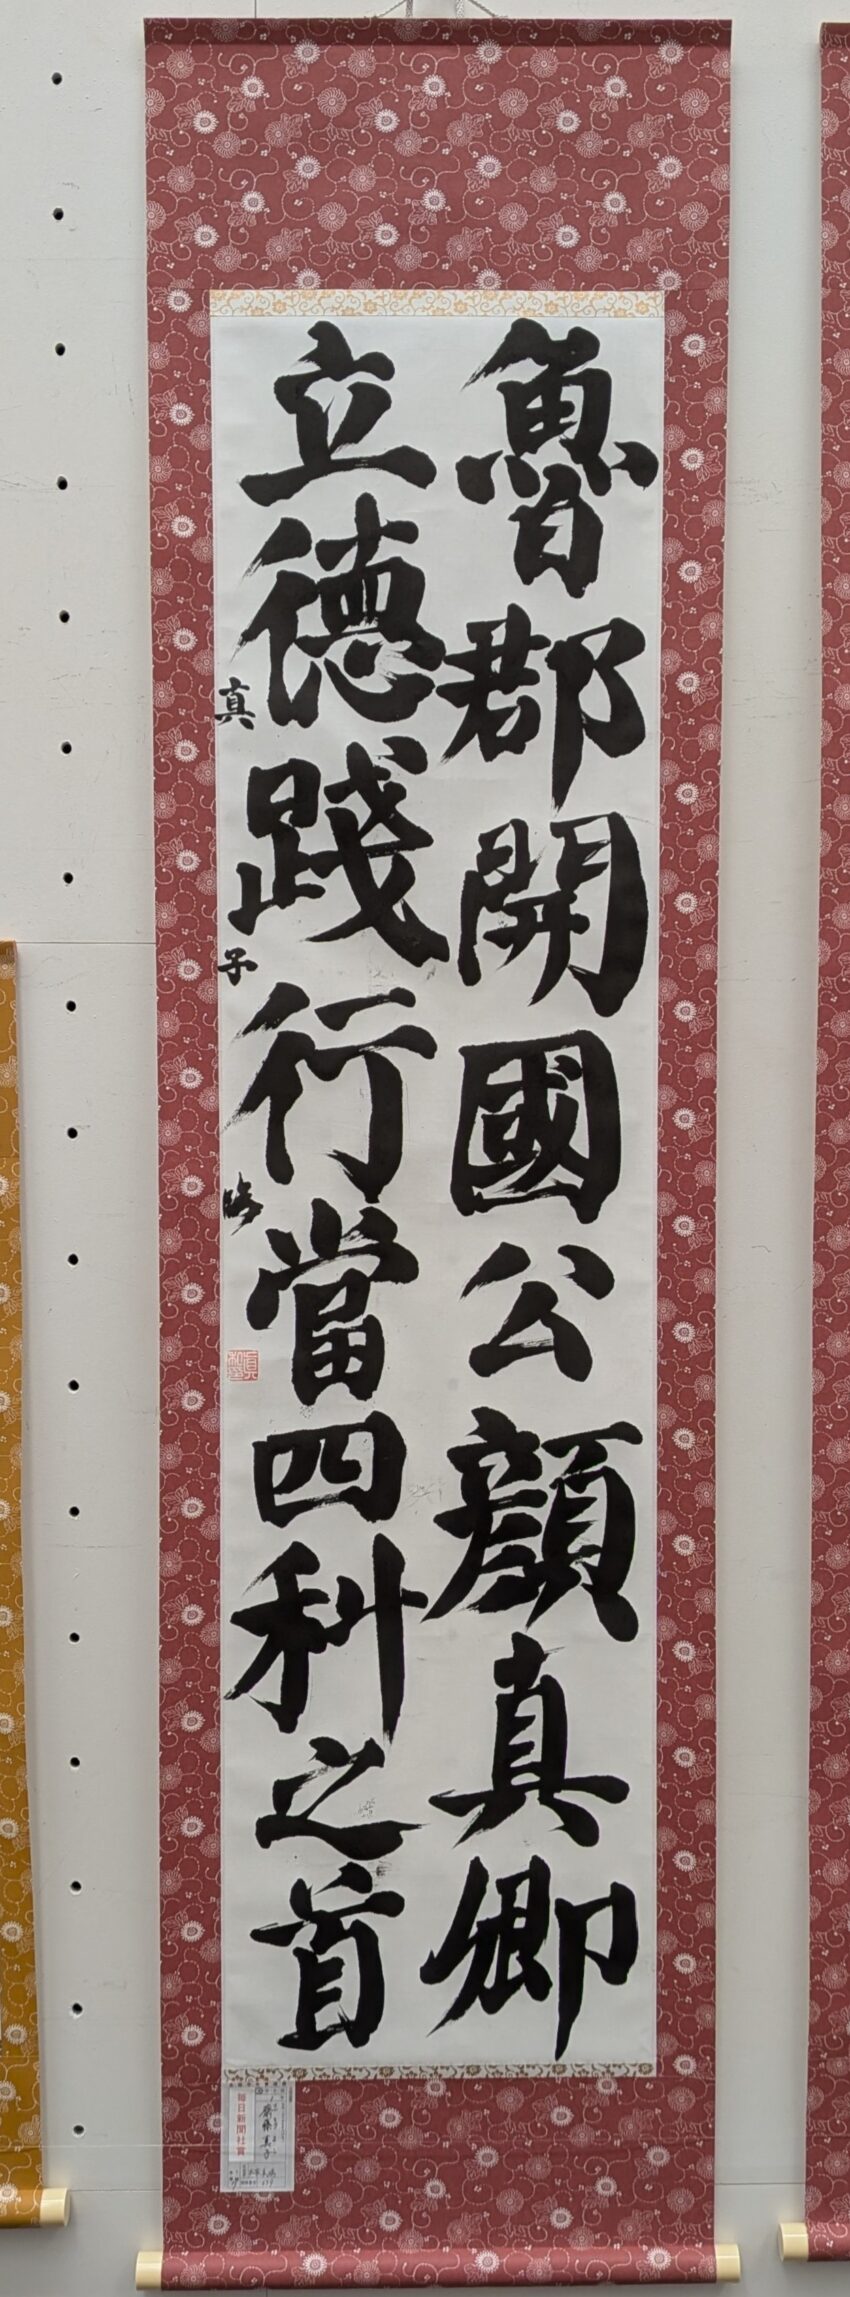 魯郡開國公顔真卿
立德踐行當四科之首
真子臨
毎日新聞社賞